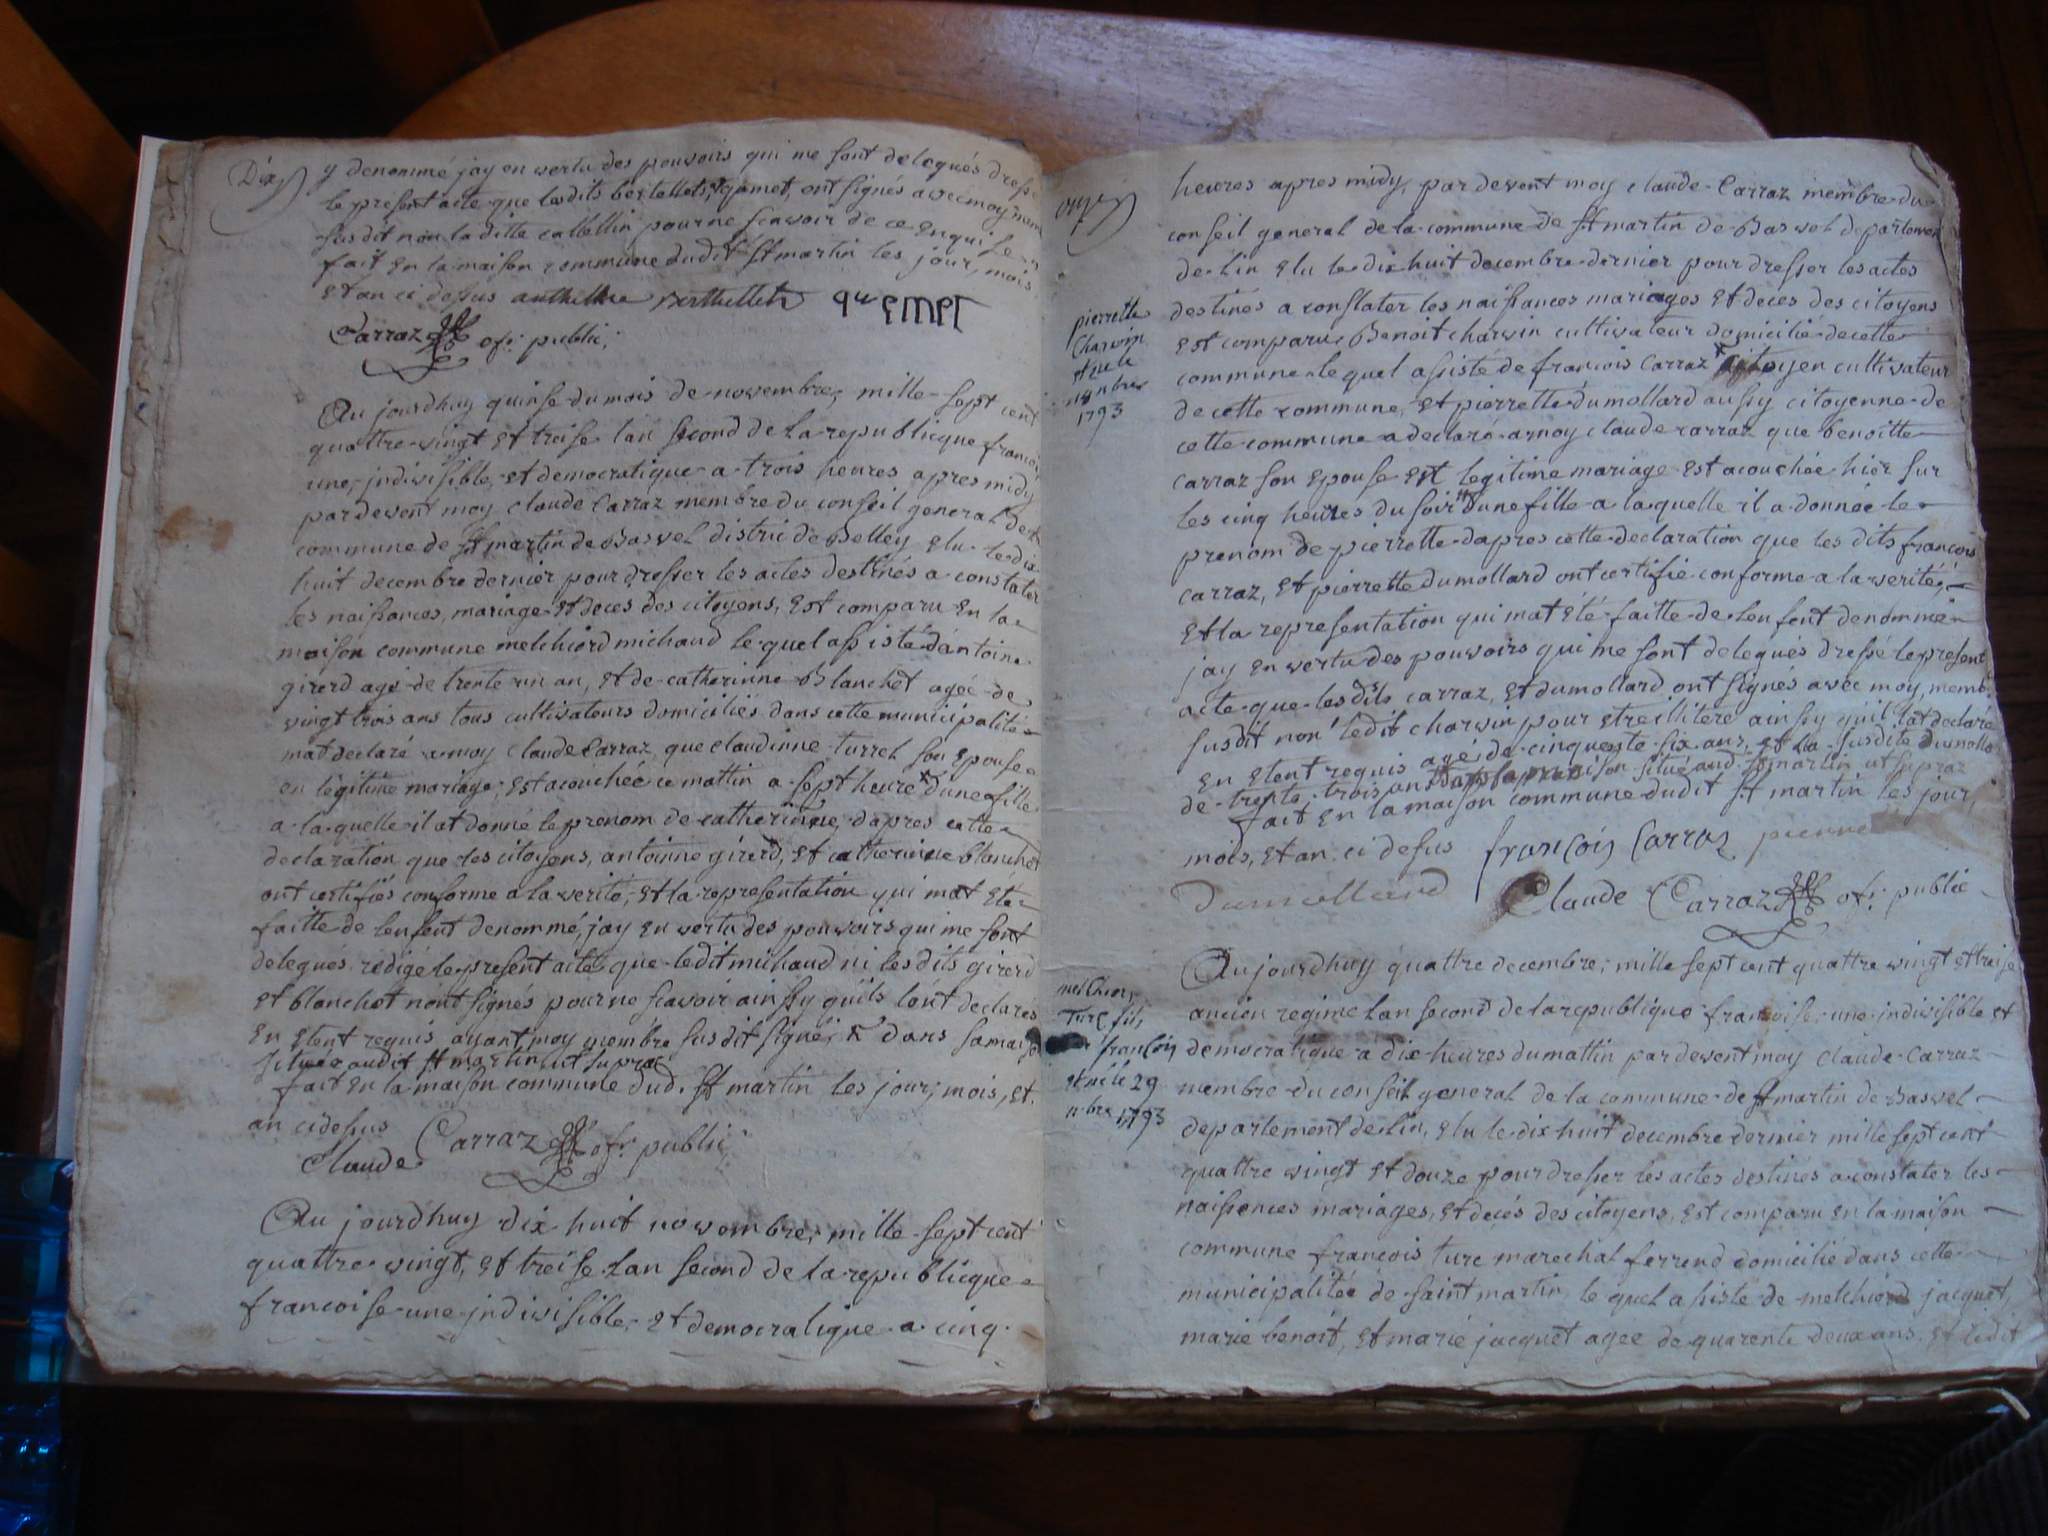 Dix
y denommé jay en vertu des pouvoirs qui me sont delegués dressé
le present acte que lesdits bertellets, quemet, ont signés avec moy
susdit non la ditte callellin pour ne scavoir de ce enquise
fait en la maison commune dudit st martin les jour, mois
et an ci dessus
Carraz of: public:
Au jourdhuy quinse du mois de novembre, mille sept cent
quattre vingt et treise lan second de la republicque francoi
une, jndivisible, et democratique a trois heures apres midy
pardevent moy claude Carraz membre du conseil general de
commune de st martin de Bavel distric de Belley elu le dix
huit decembre dernier pour dresser les actes destinés a constater
les naissances, mariage et deces des citoyens, est comparu en la
maison commune melchiord michaud le quel assisté dantoine
girerd agé de trente un an, et de catherinne Blanchet agée de
vingt trois ans tous cultivateurs domiciliés dans cette municipalité
mat declaré a moy claude Carraz que claudinne turrel son epouse
en legitime mariage, est acouchée ce mattin a sept heure dune fille
a la quelle il at donné le prenom de catherinne, dapres cette
declaration que les citoyens, antoinne girerd, et catherinne blanchet
ont certifiés conforme a la verité, et la representation qui mat été
faitte de lenfent denommé, jay en vertu des pouvoirs qui me sont
delegués redigé le present acte que ledit michaud ni les dits girerd
et blanchet nont signés pour ne scavoir ainssy quils lont declarés
en etent requis ayant moy membre susdit signé, dans sa maison
située audit st martin ut supra
fait en la maison commune dud. st martin les jour, mois, et
an cidessus
Claude Carraz of: public:
Au jourdhuy dix huit novembre, mille sept cent
quattre vingt, et treise lan second de la republicque
francoise une jndivisible, et democratique a cinq
onze
heures apres midy, par devent moy claude Carraz membre du
conseil general de la commune de st martin de Bavel departement
de Lin elu le dix huit decembre dernier pour dresser les actes
destinés a constater les naissances mariages et deces des citoyens
pierrette
Charvin
est née
18 nbre
1793
est comparu Benoit charvin cultivateur domicilié de cette
commune le quel assisté de francois Carraz citoyen cultivateur
de cette commune, et pierrette dumollard aussy citoyenne de
cette commune a declaré a moy claude carraz que benoitte
carraz son epouse est legitime mariage est acouchée hier sur
les cinq heures du soir dune fille a la quelle il a donnée le
prenom de pierrette dapres cette declaration que les dits francois
carraz, et pierrette dumollard ont certifié conforme a la verité,
et la representation qui mat été faitte de lenfent denommé
jay en vertu des pouvoirs qui me sont delegués dressé le present
acte que les dits carraz, et dumollard ont signés avec moy, memb
susdit non ledit charvin pour etre illitere ainssy quil lat declaré
en etent requis agé de cinquente six ans, et la susdite dumolla
de trente trois ans maison situé aud st martin ut supraz
fait en la maison commune dudit st martin les jour,
mois, et an ci desus françois Carraz pierre
Dumollard Claude Carraz of: public
Au jourdhuy quattre decembre, mille sept cent quattre vingt et treise
melchior
Turc fils
françois
est né le 29
nbre 1793
ancien regime lan second de la republique francoise une indivisible et
democratique a dix heures du mattin par devent moy claude Carraz
membre du conseil general de la commune de st martin de Bavel
departement de Lin, elu le dix huit decembre dernier mille sept cent
quattre vingt et douze pour dresser les actes destinés a constater les
naissences mariages, et decés des citoyens, est comparu en la maison
commune francois turc marechal ferrend domicilié dans cette
municipalitée de saint martin le quel assisté de melchiord jacquet,
marie benoit, et marie jacquet agee de quarente deux ans. et ledit